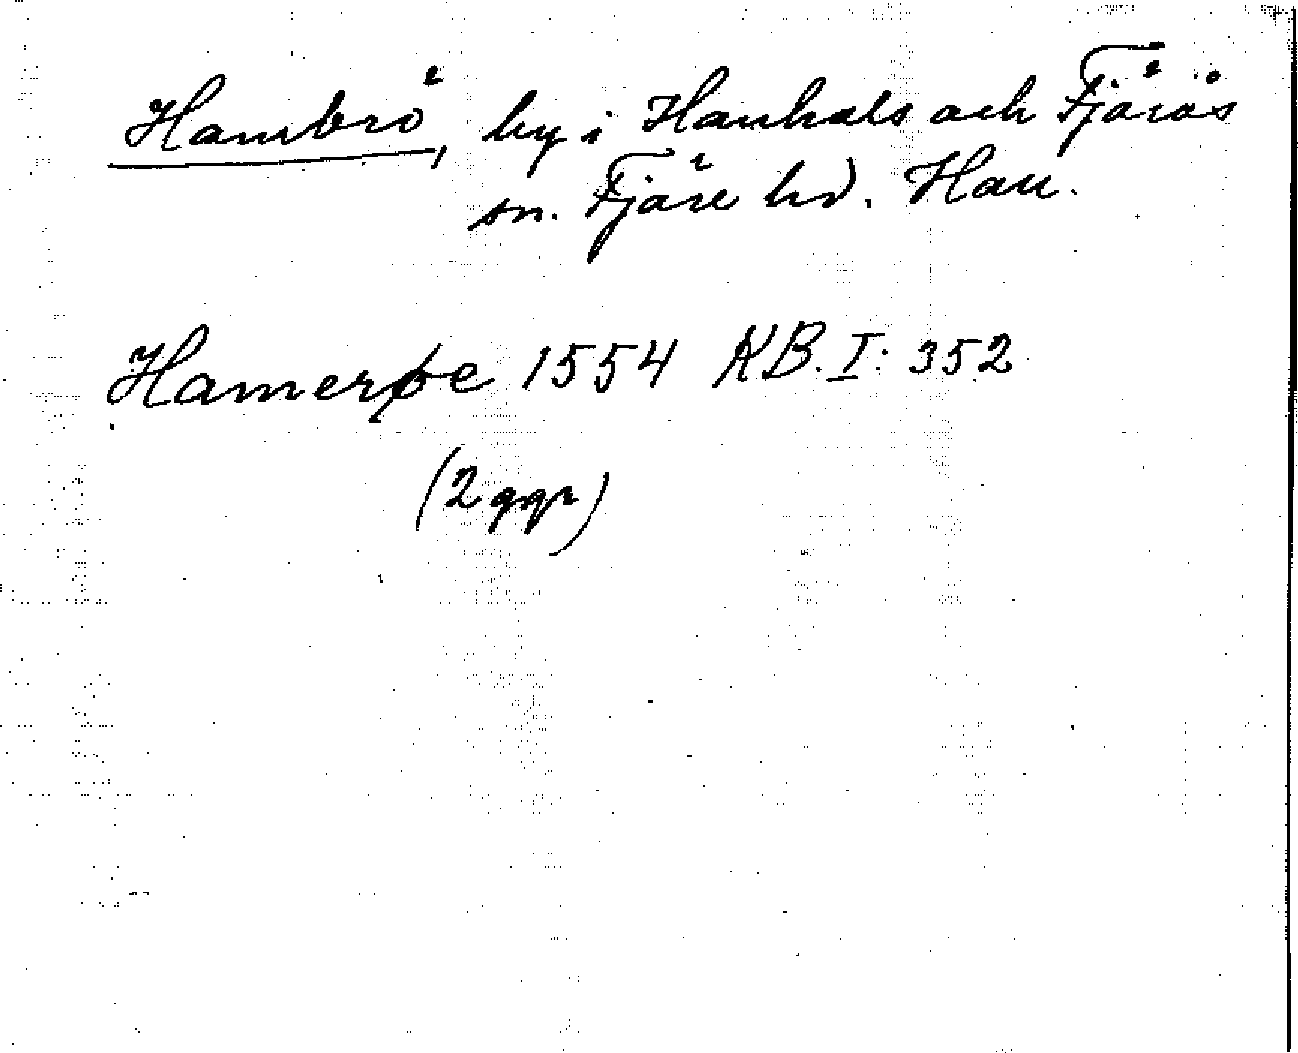 Hambrö, by i Hanhals och Fjärås
sn. Fjäre hd. Hall.
Hamerøe 1554 KB. I: 352
(2 ggr)